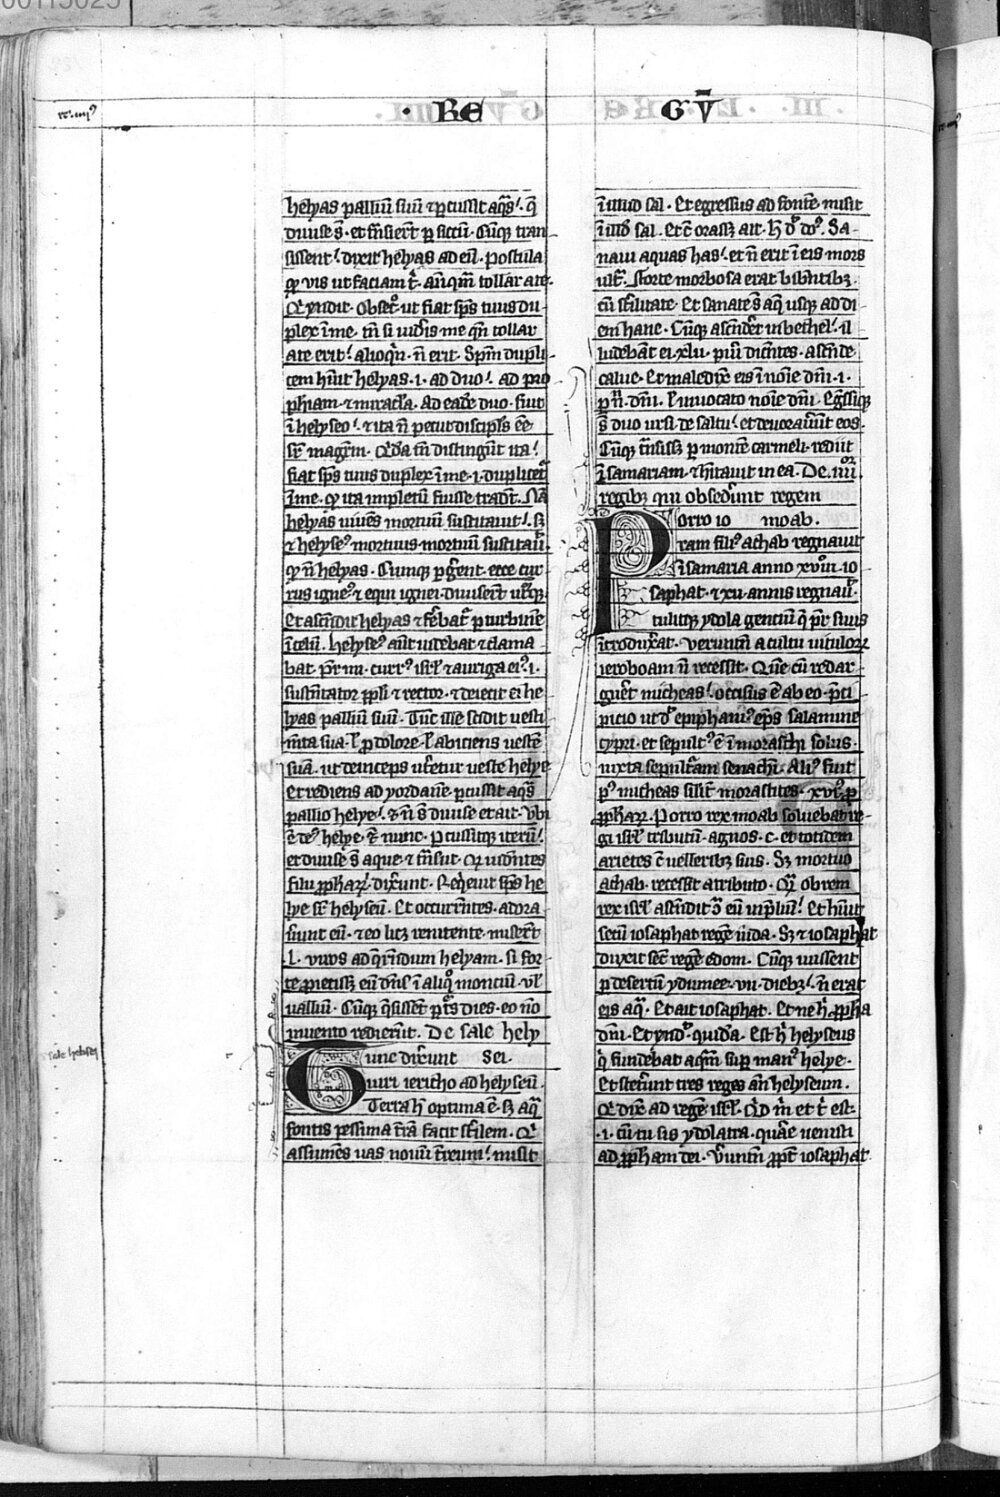 · RE GV̄
helyas palliū suū ⁊ ꝑcussit aq̄s. q̄
diuise s̄. et t̄nsiert̄ ꝑ siccū. Cūqꝫ tran
sissent. dixit helyas ad eliꝫ. Postula
qͦ vis ut faciam t̄. anq̄m tollar a te.
Qͥ rn̄dit. Obseͨͦ ut fiat sp̄s tuus du-
plex ī me. tn̄ si uidꝰis me qn̄ tollar
a te erit. alioqͥn. n̄ erit. Sp̄m dupli-
cem hūit helyas. i. ad duo. ad pro
ph̄iam. ⁊ miracl̄a. Ad eadē duo. fuit
ī helyseo. ⁊ ita n̄ petiit discipl̄s eē
sꝑ magr̄m. Qͥdā tn̄ distingūt ita.
fiat sp̄s tuus duplex ī me. i. dupliceͭ
ī me. qͦ ita impletū fuisse tradt̄. Nā
helyas uiuēs mortuū suscitauit. sꝫ
⁊ helyseꝰ mortuus mortuū suscitauͭ.
qͦ n̄ helyas. Cumqꝫ ꝑgent̄. ecce cur
rus igneꝰ ⁊ equi ignei. diuisert̄ ut̄qꝫ.
Et ascēdit helyas ⁊ fēbat̄ ꝑ turbinē
ī celū. helyseꝰ aūt uidebat ⁊ clama
bat. pr̄ mi. currꝰ isrl̄ ⁊ auriga eiꝰ. i.
sustētator ppl̄i ⁊ rector. ⁊ deiecit ei he
lyas palliū suū. Tūc ille scidit uesti
mt̄a sua. l̄ p̄ dolore. l̄ abiciens uestē
suā. ut deinceps utēr̄ ueste helye
Et rediens ad yordanē. ꝑcussit aq̄s
pallio helye. ⁊ n̄ s̄ diuise et ait. Vbi
ē deꝰ helye. ēͭ nunc. Ꝑcussitqꝫ iterū.
et diuise s̄ aque. ⁊ t̄nsiit. Qͦ uidētes
filii ꝓph̄aꝝ. dixert̄. Reqͥeuit sp̄s he
lye sꝑ helyseū. Et occurrentes. adora
ūunt eū. ⁊ eo licꝫ renitente. misert̄
.l. viros ad qͥrēdum helyam. si for
te ꝓiecisꝫ eū dn̄s ī aliqͦ monciū. vl̄
ualliū. Cūqꝫ q̄sissēt ꝑ tˢ dies. eo nō
inuento redierūt. De sale hely
Tunc dixert̄ sei.
uiri iericho ad helyseū.
Terra h̄ optima ē. sꝫ aq̄
fontis pessima t̄rā facit stilem. Qͥ
assumēs uas nouū t̄reum. misit
ī illud sal. Et egressus ad fontē misit
ī illo sal. Et c̄ orassꝫ ait. h̄ d̄ dō̄s. Sa-
naui aquas has. et n̄ erit ī eis mors
ult̄ͣ. Forte morbosa erat bibētibꝫ.
cū stilitate. Et sanate s̄ aq̄ usqꝫ ad di
em hanc. Cūqꝫ ascēder̄ in bethel. il
ludebāt ei .xlii. pūi dicētes. ascēde
calue. Et maledix̄ eis ī noīe dn̄i. i.
ꝑ n̄. dn̄i. l̄ inuocato noīe dn̄i. Egͬssiqꝫ
s̄ duo ursi de saltu. et deuorauūt eos.
Cūqꝫ t̄nsissꝫ ꝑ montē carmeli. rediit
ī samariam. ⁊ hītauit in ea. De .iiiiͦʳ.
regibꝫ qui obsederūt regem
Porro io moab.
ram filiꝰ achab regnauit
ī samaria anno xviii. io
saphat. ⁊ xii. annis regnauͭ.
tulitqꝫ ydola gentiū q̄ pr̄ suus
ītroduxat̄. veruntn̄ a cultu uituloꝝ
ieroboam n̄ recessit. Quē cū redar
guēt micheas. occisus ē ab eo. p̄ci
picio ut d̄ epiphaniꝰ ep̄s salamine
cypri. et sepultꝰ ē ī morasthi solus.
iuxta sepulcͬam senachi. Aliꝰ fuit
pꝰ micheas silit̄ morastites. xvi.ꝰ ꝑ
ꝓph̄aꝝ. Porro rex moab soluebat re-
gi isrl̄ tributū. agnos .c. et totidem
arietes c̄ uelleribꝫ suis. Sꝫ mortuo
achab. recessit a tributo. Qͣ ob rem
rex isrl̄ ascēdit ꝯͣ eū in p̄liū. Et hūit
secū iosaphat regē iuda. Sꝫ ⁊ iosaphat
duxit secū regē edom. Cūqꝫ iuissent
ꝑ desertū ydumee. vii. diebꝫ. n̄ erat
eis aq̄. Et ait iosaphat. Et ne h̄ ꝓph̄a
dn̄i. Et rn̄dͭ quidā. Est h̄ helyseus
qͥ fundebat aq̄m suꝑ manꝰ helye.
Et steterūt tres reges an̄ helyseum.
Qͥ dix̄ ad regē isrl̄. Qͥd m̄ et t̄ est.
.i. cū tu sis ydolatra. quare uenisti
ad ꝓph̄am dei. Veruntn̄ ꝓpt̄ iosaphat